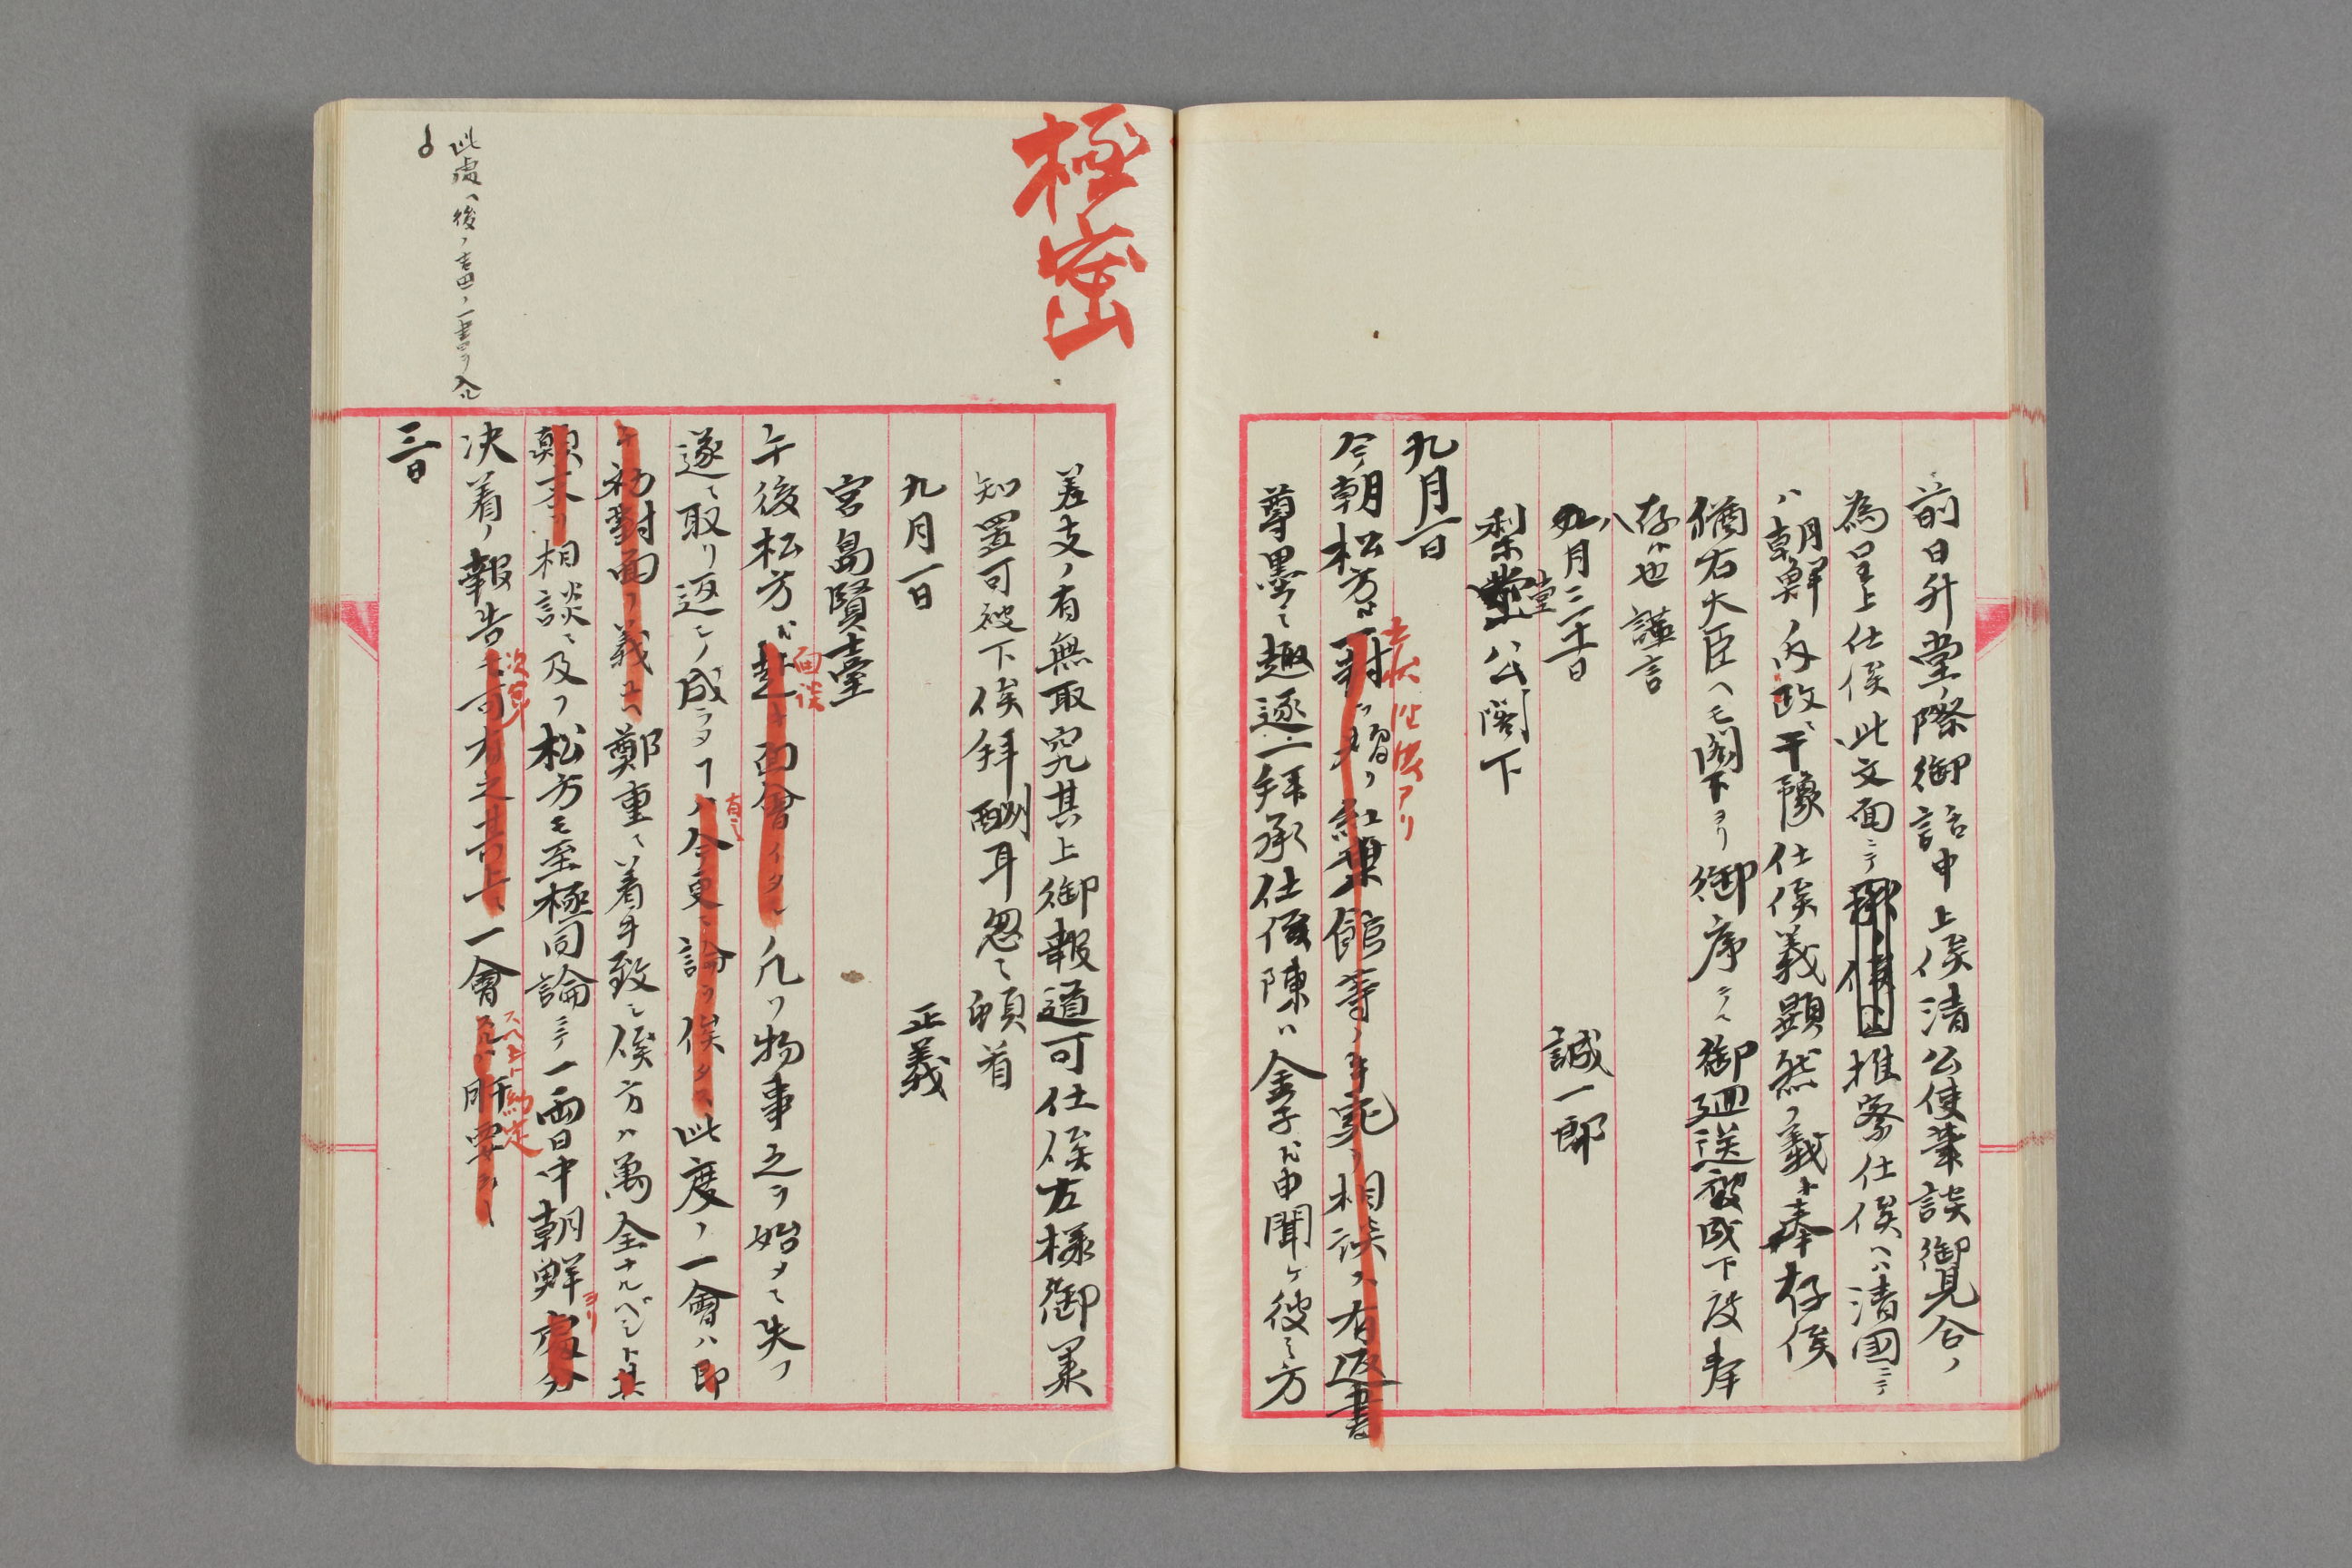 前日升堂ノ際御話申上候清公使筆談御見合ノ
為呈上仕候此文面ニテ推察仕候ヘハ清国ニテ
ハ朝鮮ノ内政ニ干豫仕候義顕然ノ義ト奉存候
猶右大臣ヘモ閣下ヨリ御序ニ御廻送被成下度奉
存候也謹言
八月三十一日
誠一郎
梨堂公閣下
九月一日
今朝松方ヨリ一封ヲ贈リ紅葉館等ノ年寃ヲ相談ス右返書
左ノ状アリ
尊墨之趣逐一拝承仕候陳ハ金子ヘ申聞ケ彼之方
極密
差支ノ有無取究其上御報道可仕候左様御業
知置可被下候拝酬耳忽々頓首
九月一日
正義
宮島賢臺
午後松方ヘ赴キ面會イタシ凡ソ物事之ヲ始メニ失フ
面談
遂ニ取リ返シノ成ラヌヿハ今更ニ論ヲ俟タス此度ノ一會ハ即
チ初對面ノ義ユヘ鄭重ニ着手致シ候方ハ萬全ナルベシト其
顛末ヲ相談ニ及フ松方モ至極同論ニテ一両日中朝鮮處分
ヨリ
決着ノ報告モ可有之其上ニ一會スルハ肝要ナリ
次第
スベシト約定
三日
此處ヘ後ノ吉田ノ一書ヲ入ル